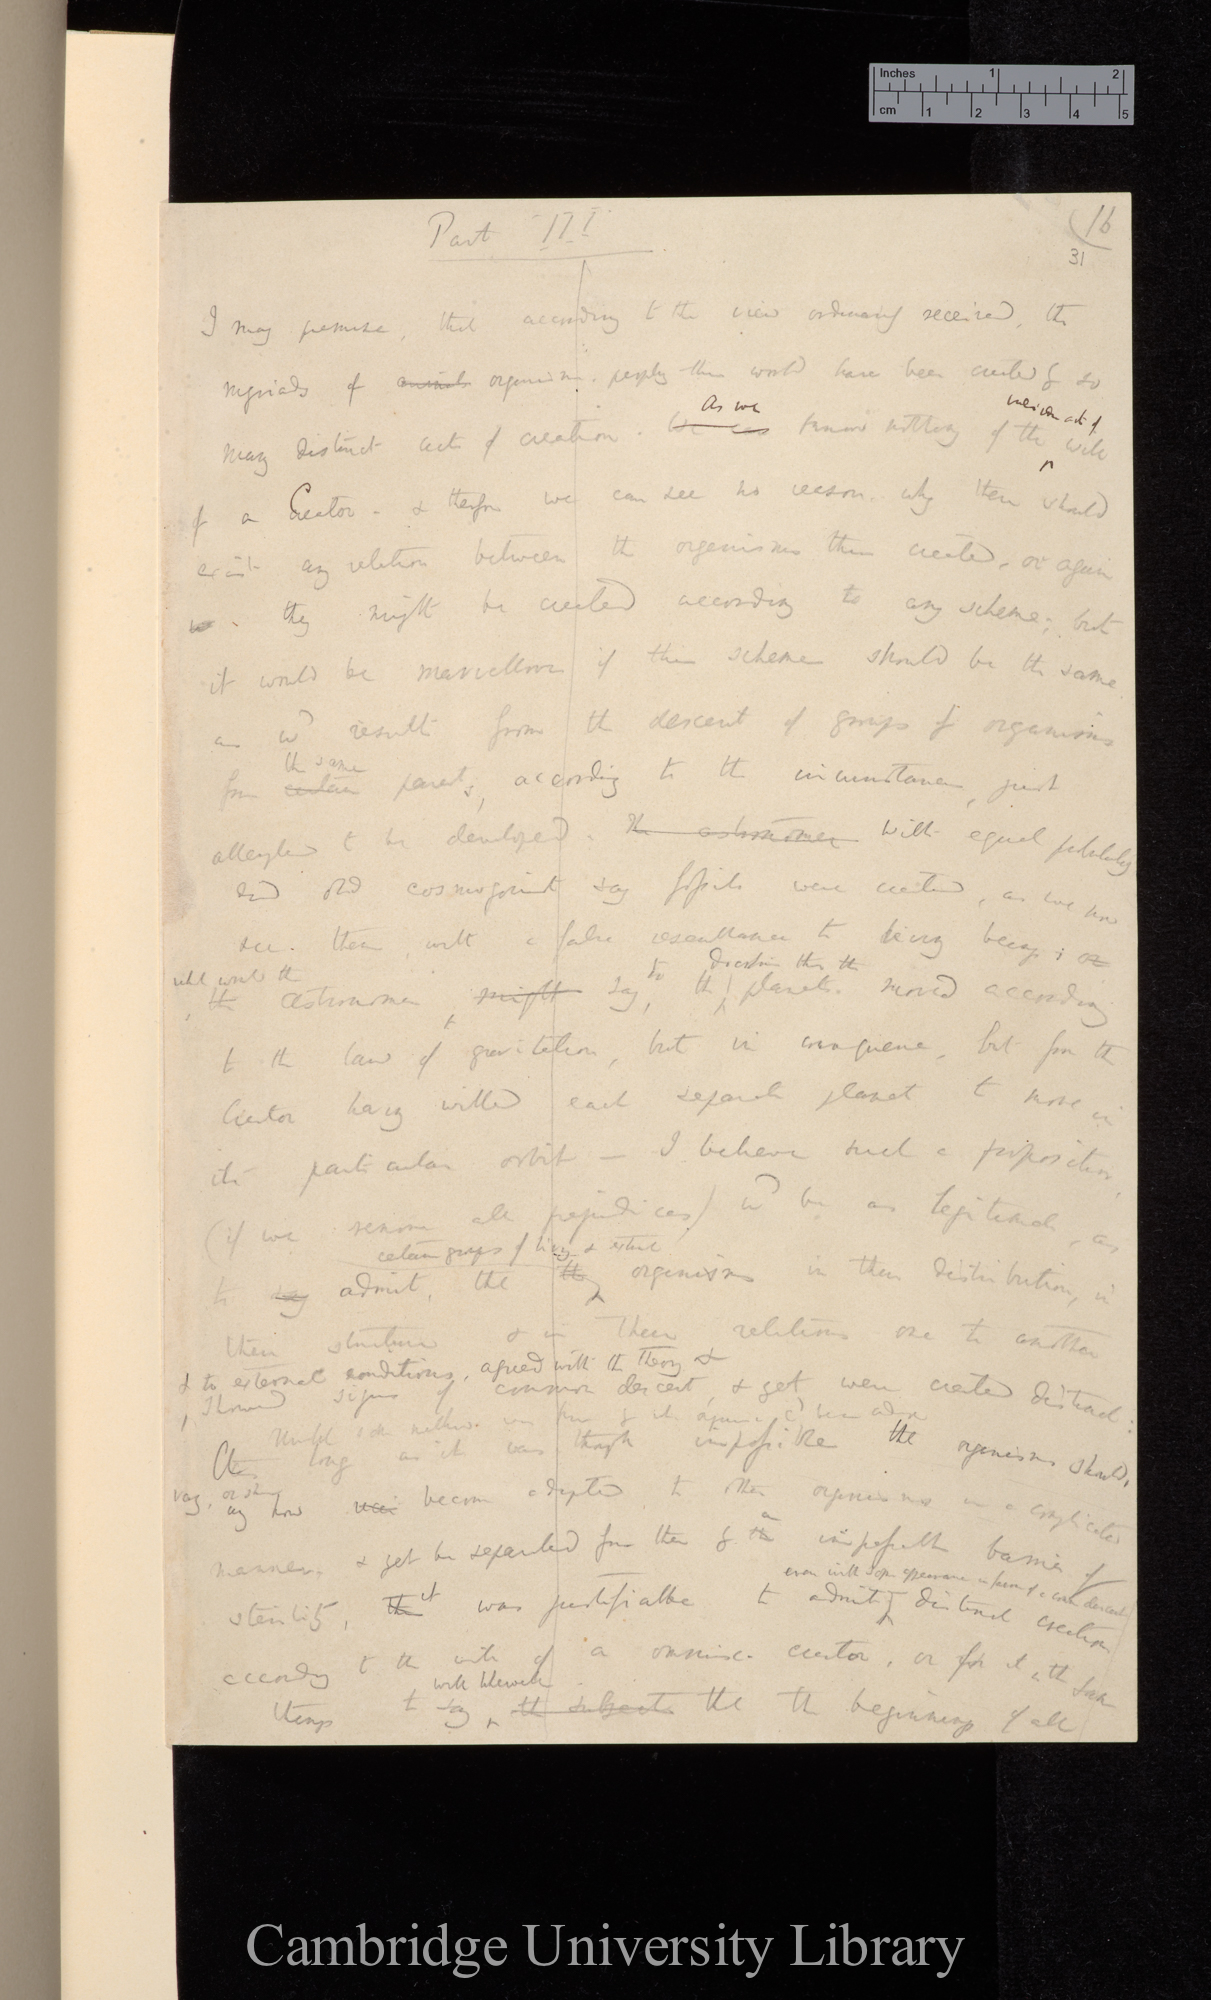 Inches 1 2
cm 1 2 3 4 5
Part III
16
31
I may premise, that according to the view ordinarily received, the
myriads of animals organisms peopling this world have been created by so
As we
many distinct acts of creation. we can know nothing of the will
of a Creator - & therefore we can see no reason why there should
exist any relation between the organisms thus created, or again
they might be created according to any scheme; but
it would be marvellous if this scheme should be the same
as wd result from the descent of groups of organisms
the same
from certain parents, according to the circumstances, just
attempted to be developed. The astronomer With equal probability
did old cosmogonist say fossils were created, as we now
see them, with a false resemblance to living beings; or
what would the doctrine that the
the astronomer might say, to the planets moved according
to the law of gravitation, but in consequence, but from the
Creator having willed each separate planet to move in
its particular orbit — I believe such a proposition,
(if we remove all prejudices) wd be as legitimate, as
certain groups of living & extinct
to say admit, the the organisms in their distribution, in
their structure & in their relations one to another
& to external conditions, agreed with the theory &
showed signs of common descent, & yet were created distinct:
As long as it was thought impossible the organisms should
vary, or should
any how become adapted to other organisms in a complicated
manner, & yet be separated from them by an impassable barrier of
even with some appearance in favour of a common descent
sterility, the it was justifiable to admit distinct creation
according to the will of a omniscient creator, or for it is the same
with Whewell
thing to say, the subjects that the beginnings of all
Cambridge University Library